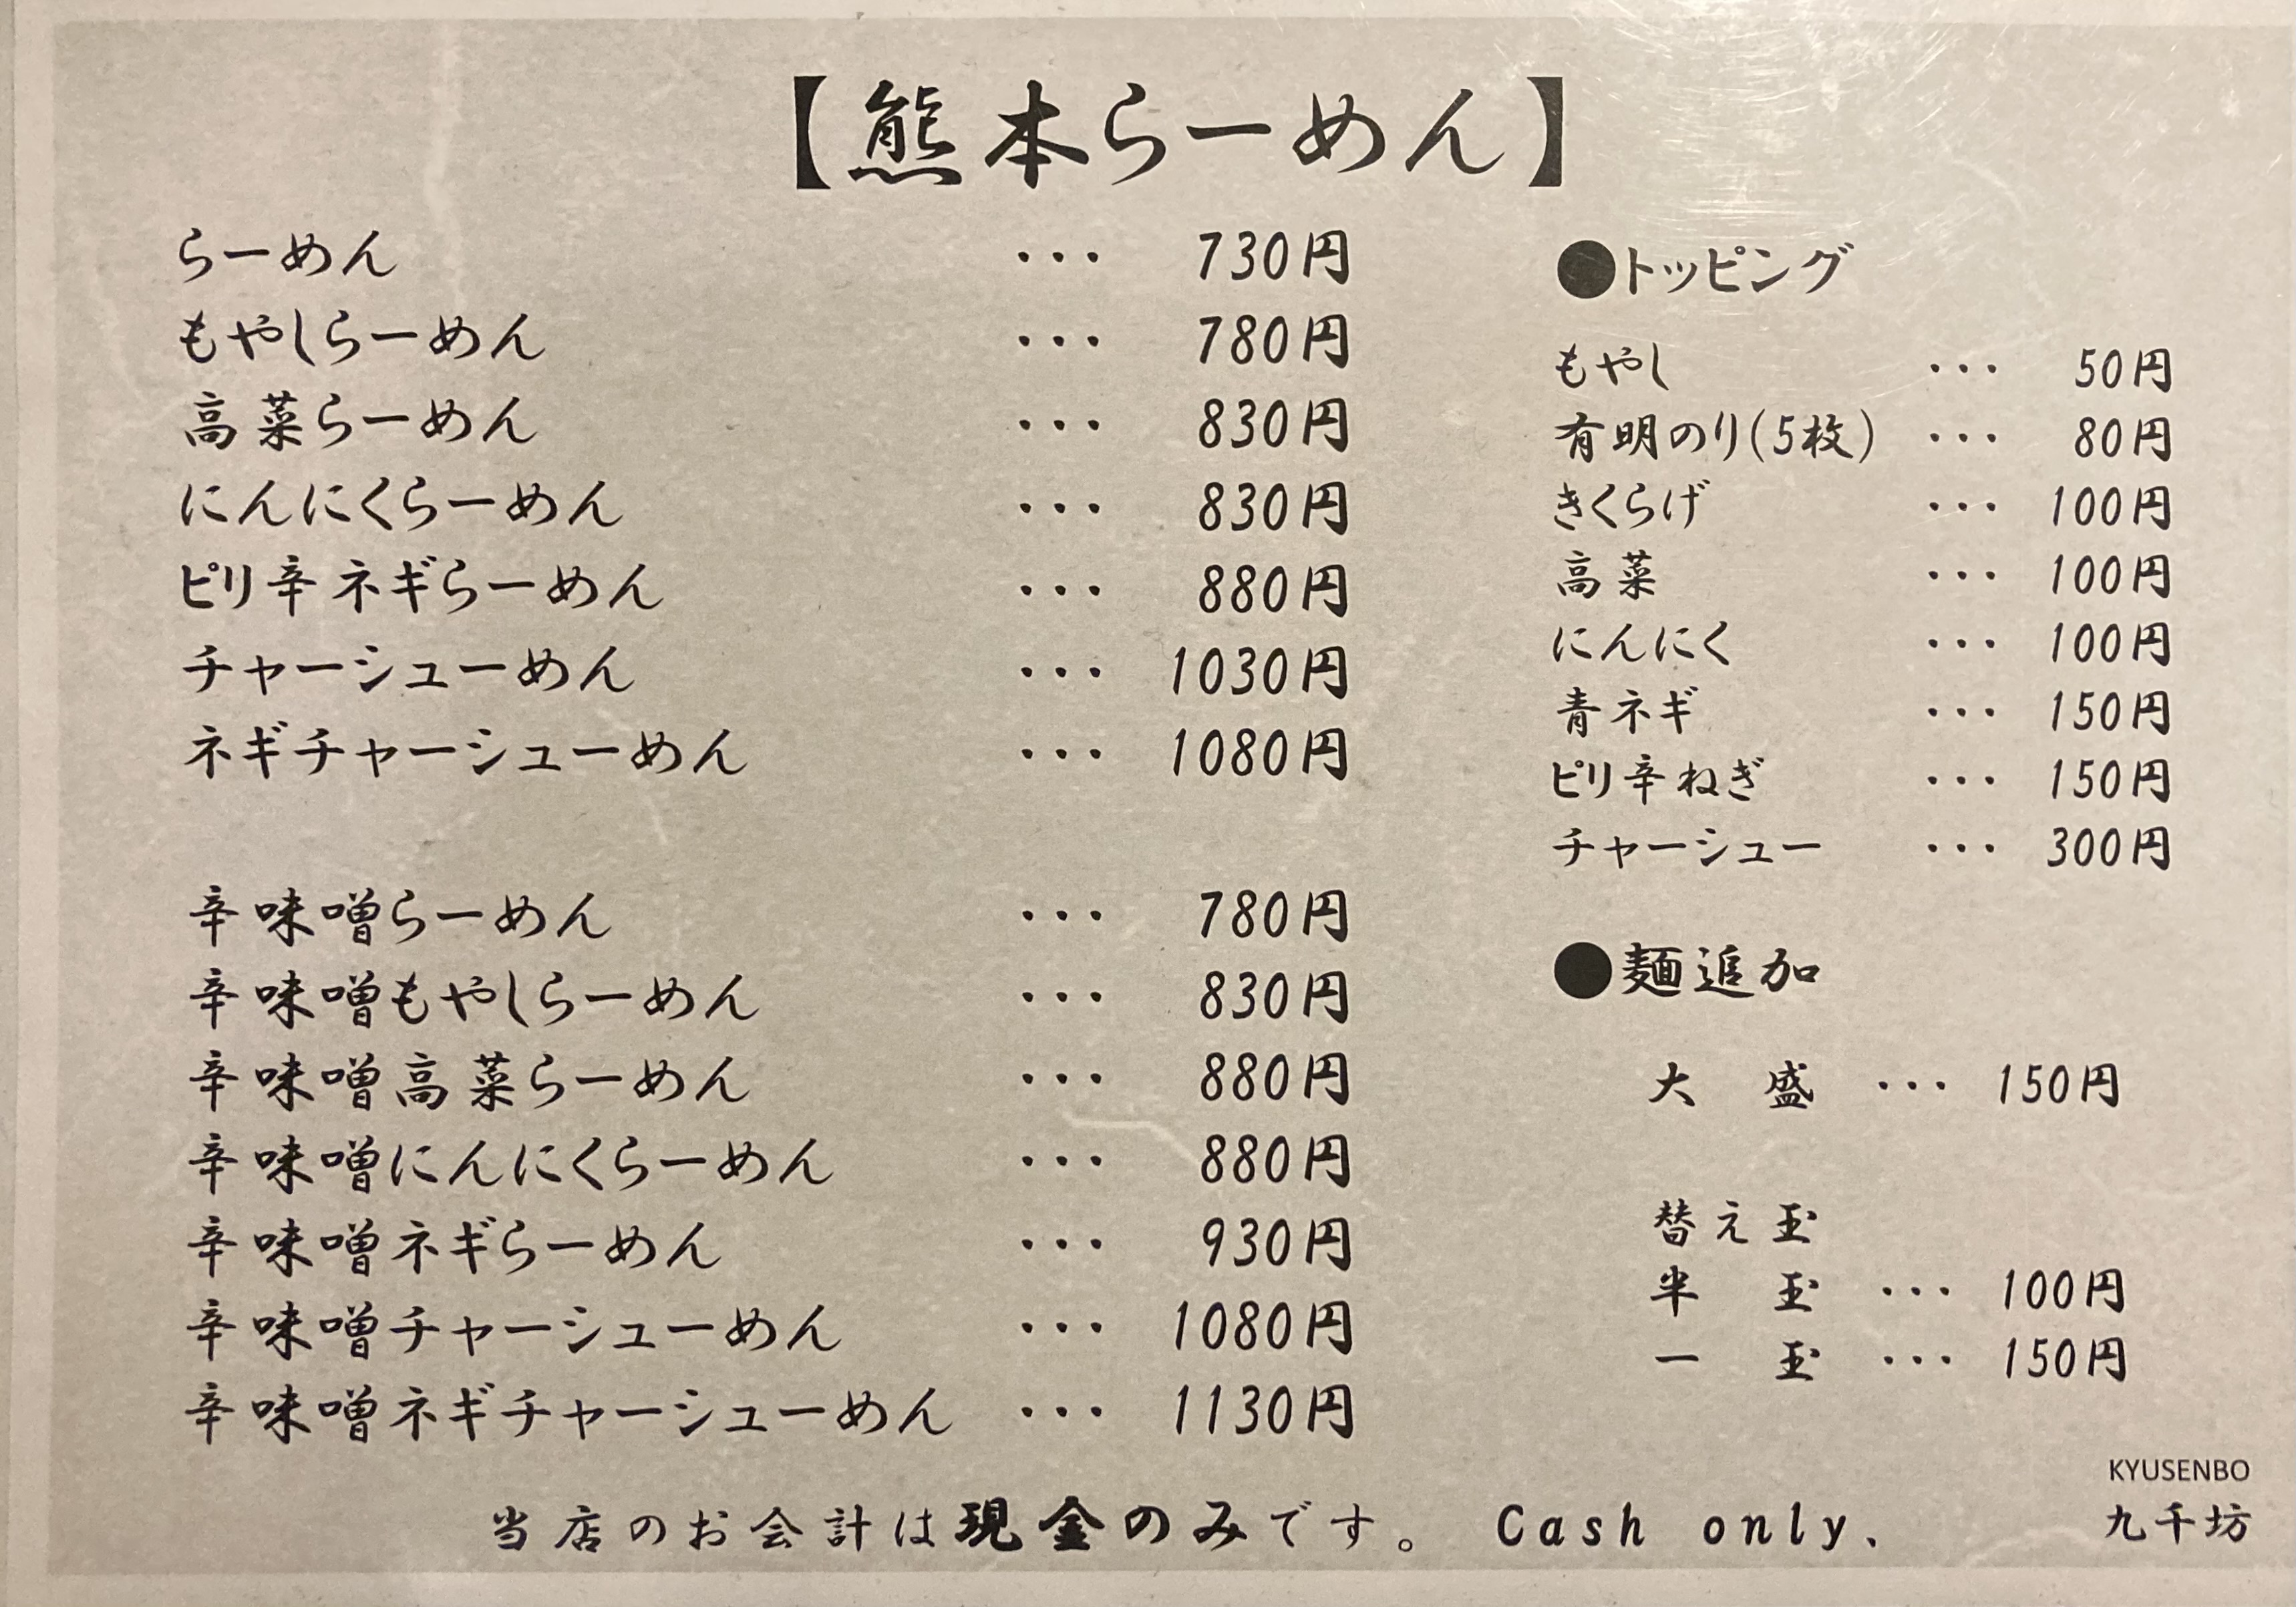 【熊本らーめん】
らーめん ・・・ 730円
もやしらーめん ・・・ 780円
高菜らーめん ・・・ 830円
にんにくらーめん ・・・ 830円
ピリ辛ネギらーめん ・・・ 880円
チャーシューめん ・・・ 1030円
ネギチャーシューめん ・・・ 1080円
辛味噌らーめん ・・・ 780円
辛味噌もやしらーめん ・・・ 830円
辛味噌高菜らーめん ・・・ 880円
辛味噌にんにくらーめん ・・・ 880円
辛味噌ネギらーめん ・・・ 930円
辛味噌チャーシューめん ・・・ 1080円
辛味噌ネギチャーシューめん ・・・ 1130円
●トッピング
もやし ・・・ 50円
有明のり(5枚) ・・・ 80円
きくらげ ・・・ 100円
高菜 ・・・ 100円
にんにく ・・・ 100円
青ネギ ・・・ 150円
ピリ辛ねぎ ・・・ 150円
チャーシュー ・・・ 300円
●麺追加
大 盛 ・・・ 150円
替え玉
半 玉 ・・・ 100円
一 玉 ・・・ 150円
当店のお会計は現金のみです。 Cash only.
KYUSENBO
九千坊